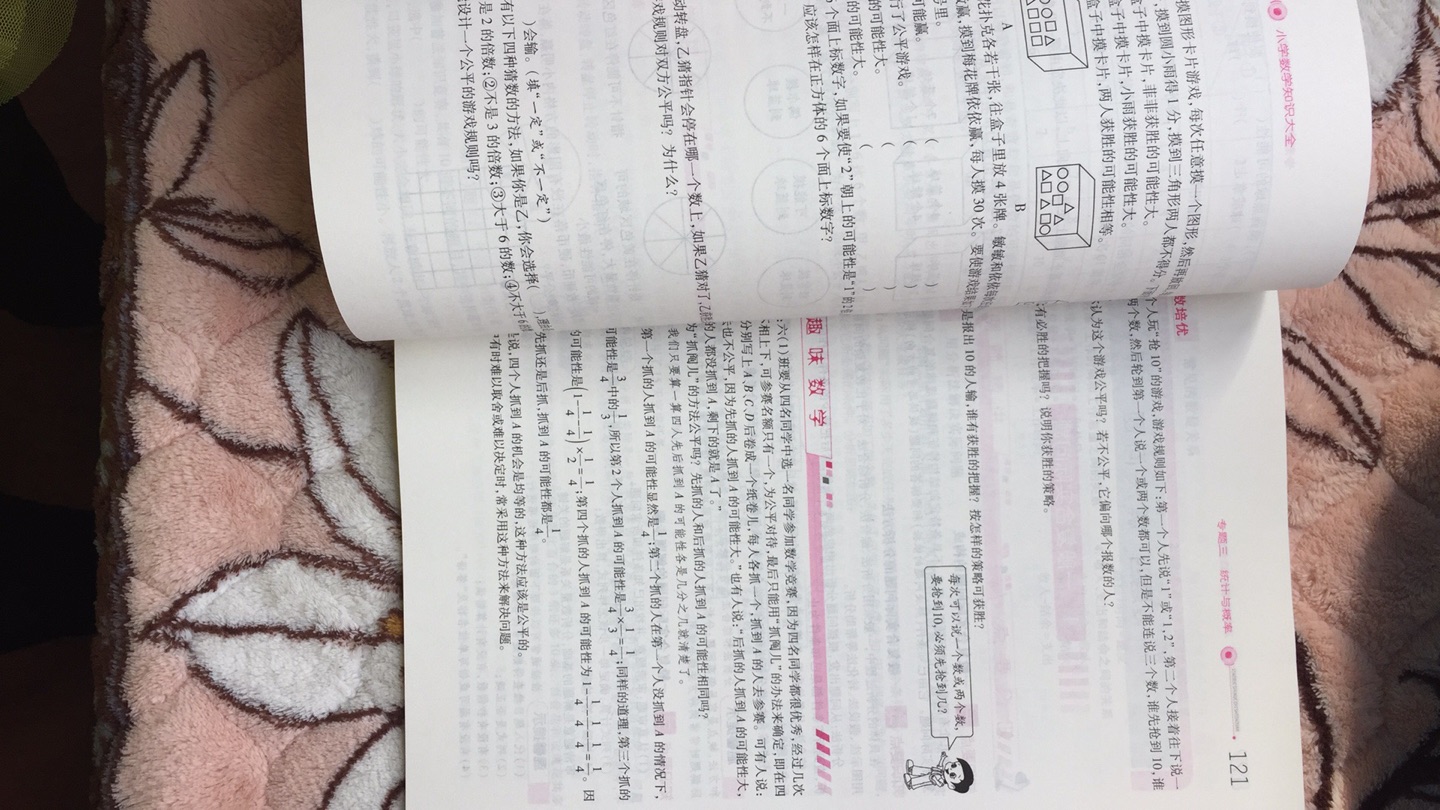 小学数学知识大全
摸图形卡片游戏,每次任意摸一个图形,然后再
,摸到圆小雨得1分,摸到三角形两人都不得分
盒子中摸卡片,菲菲获胜的可能性大。
盒子中摸卡片,小雨获胜的可能性大。
盒子中摸卡片,两人获胜的可能性相等。
A
B
花扑克各若干张,往盒子里放4张牌。敏敏和依依
赢,摸到梅花牌依依赢,每人摸30次。要使游戏
号里。
可能赢。( )
行了公平游戏。( )
的可能性大。( )
的可能性大。( )
6个面上标数字,如果要使“2”朝上的可能性是“1”的
应该怎样在正方体的6个面上标数字?
动转盘,乙猜指针会停在哪一个数上,如果乙猜对了,乙
戏规则对双方公平吗?为什么?
)会输。(填“一定”或“不一定”)
有以下四种猜数的方法,如果你是乙,你会选择( ),
是2的倍数;②不是3的倍数;③大于6的数;④不大于6
设计一个公平的游戏规则吗?
专题三 统计与概率
121
培优
个人玩“抢10”的游戏,游戏规则如下:第一个人先说“1”或“1,2”,第二个人接着往下说一
两个数,然后轮到第一个人说一个或两个数都可以,但是不能连说三个数,谁先抢到10,谁
认为这个游戏公平吗?若不公平,它偏向哪个报数的人?
有必胜的把握吗?说明你获胜的策略。
是报出10的人输,谁有获胜的把握?按怎样的策略可获胜?
每次可以说一个数或两个数,
要抢到10,必须先抢到几?
趣味数学
六(1)班要从四名同学中选一名同学参加数学竞赛,因为四名同学都很优秀,经过几次
相上下,可参赛名额只有一个,为公平对待,最后只能用“抓阄儿”的办法来确定,即在四
分别写上A,B,C,D后卷成一个纸卷儿,每人各抓一个,抓到A的人去参赛。可有人说:
也不公平,因为先抓的人抓到A的可能性大。”也有人说:“后抓的人抓到A的可能性大,
的人都没抓到A,剩下的就是A了。”
为“抓阄儿”的方法公平吗?先抓的人和后抓的人抓到A的可能性相同吗?
我们只要算一算四人先后抓到A的可能性各是几分之几就清楚了。
第一个抓的人抓到A的可能性显然是1/4;第二个抓的人在第一个人没抓到A的情况下,
可能性是3/4中的1/3,所以第2个人抓到A的可能性是3/4×1/3=1/4;同样的道理,第三个抓的
的可能性是(1-1/4-1/4)×1/2=1/4;第四个抓的人抓到A的可能性为1-1/4-1/4-1/4=1/4。因
先抓还是后抓,抓到A的可能性都是1/4。
说,四个人抓到A的机会是均等的,这种方法应该是公平的。
有时难以取舍或难以决定时,常采用这种方法来解决问题。